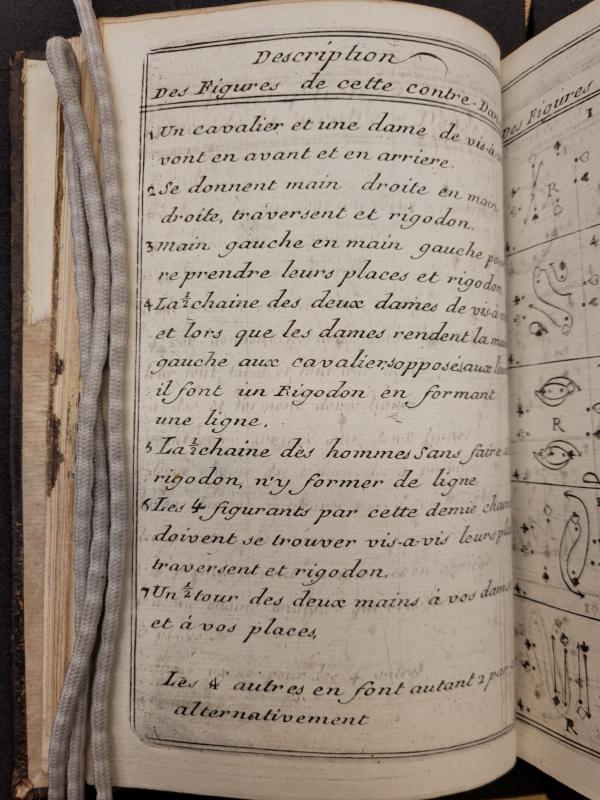 Description
Des Figures de cette contre-Dan
1 Un cavalier et une dame de vis-a-
vont en avant et en arriere.
2 Se donnent main droite en main
droite, traversent et rigodon.
3 Main gauche en main gauche pou
reprendre leurs places et rigodon
4 La ½ chaine des deux dames de vis-a-
et lors que les dames rendent la mai
gauche aux cavaliers opposés aux leur
il font un Rigodon en formant
une ligne.
5 La ½ chaine des hommes sans faire
rigodon, n'y former de ligne
6 Les 4 figurants par cette demie chai
doivent se trouver vis-a-vis leurs pla
traversent et rigodon.
7 Un ½ tour des deux mains á vos dame
et á vos places,
Les 4 autres en font autant 2 par
alternativement
Des Figures
1
R
R
D
R